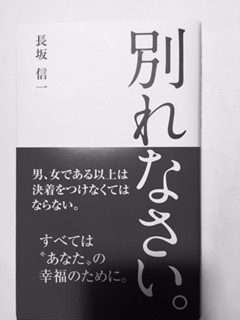 別れなさい。
長坂 信一
男、女である以上は
決着をつけなくては
ならない。
すべては
〝あなた〟の
幸福のために。